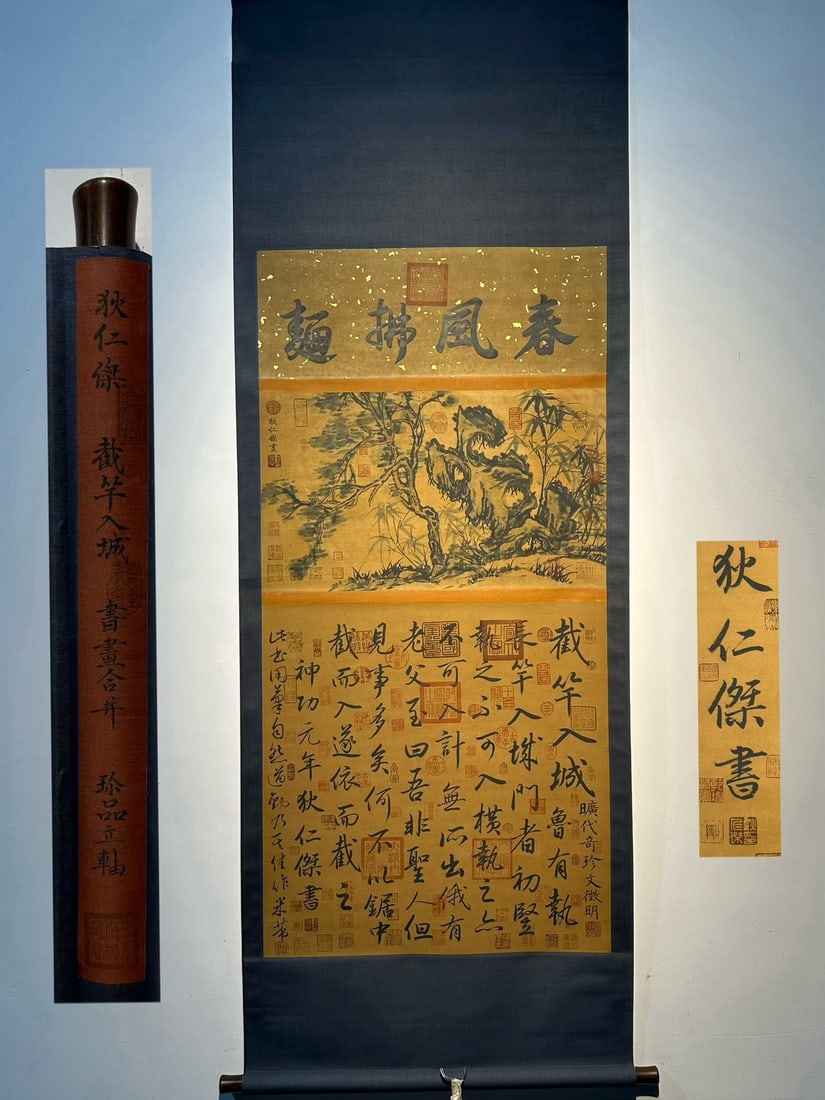 狄仁傑 截竿入城 書畫合并 珍品立軸
春風拂麵
狄仁傑畫
曠代奇珍文徵明
截竿入城魯有執
長竿入城門者初豎
執之不可入橫執之亦
不可入計無所出俄有
老父至曰吾非聖人但
見事多矣何不以鋸中
截而入遂依而截之
神功元年狄仁傑書
此書用筆自然遒勁乃其佳作米芾
狄仁傑書